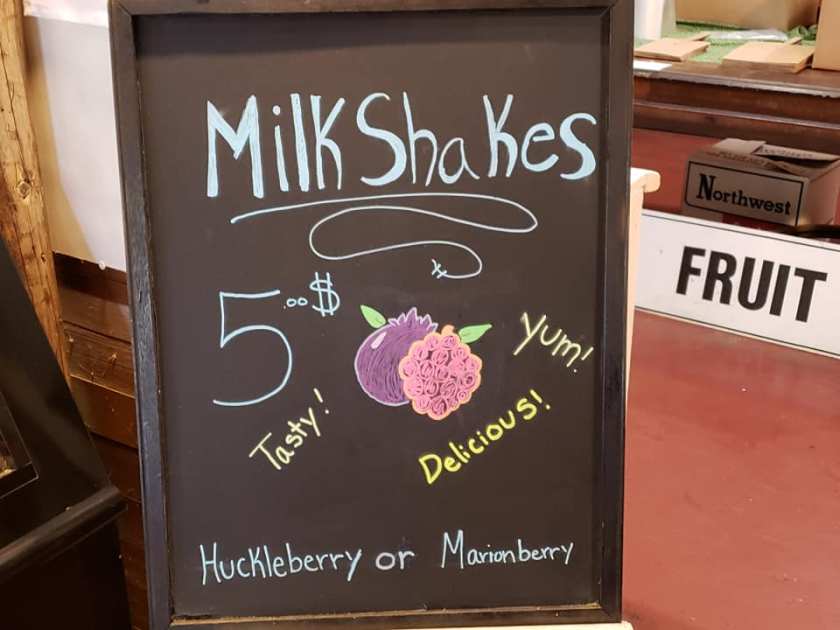 MilkShakes
5.00$
Yum!
Tasty!
Delicious!
Huckleberry or Marionberry
Northwest
FRUIT